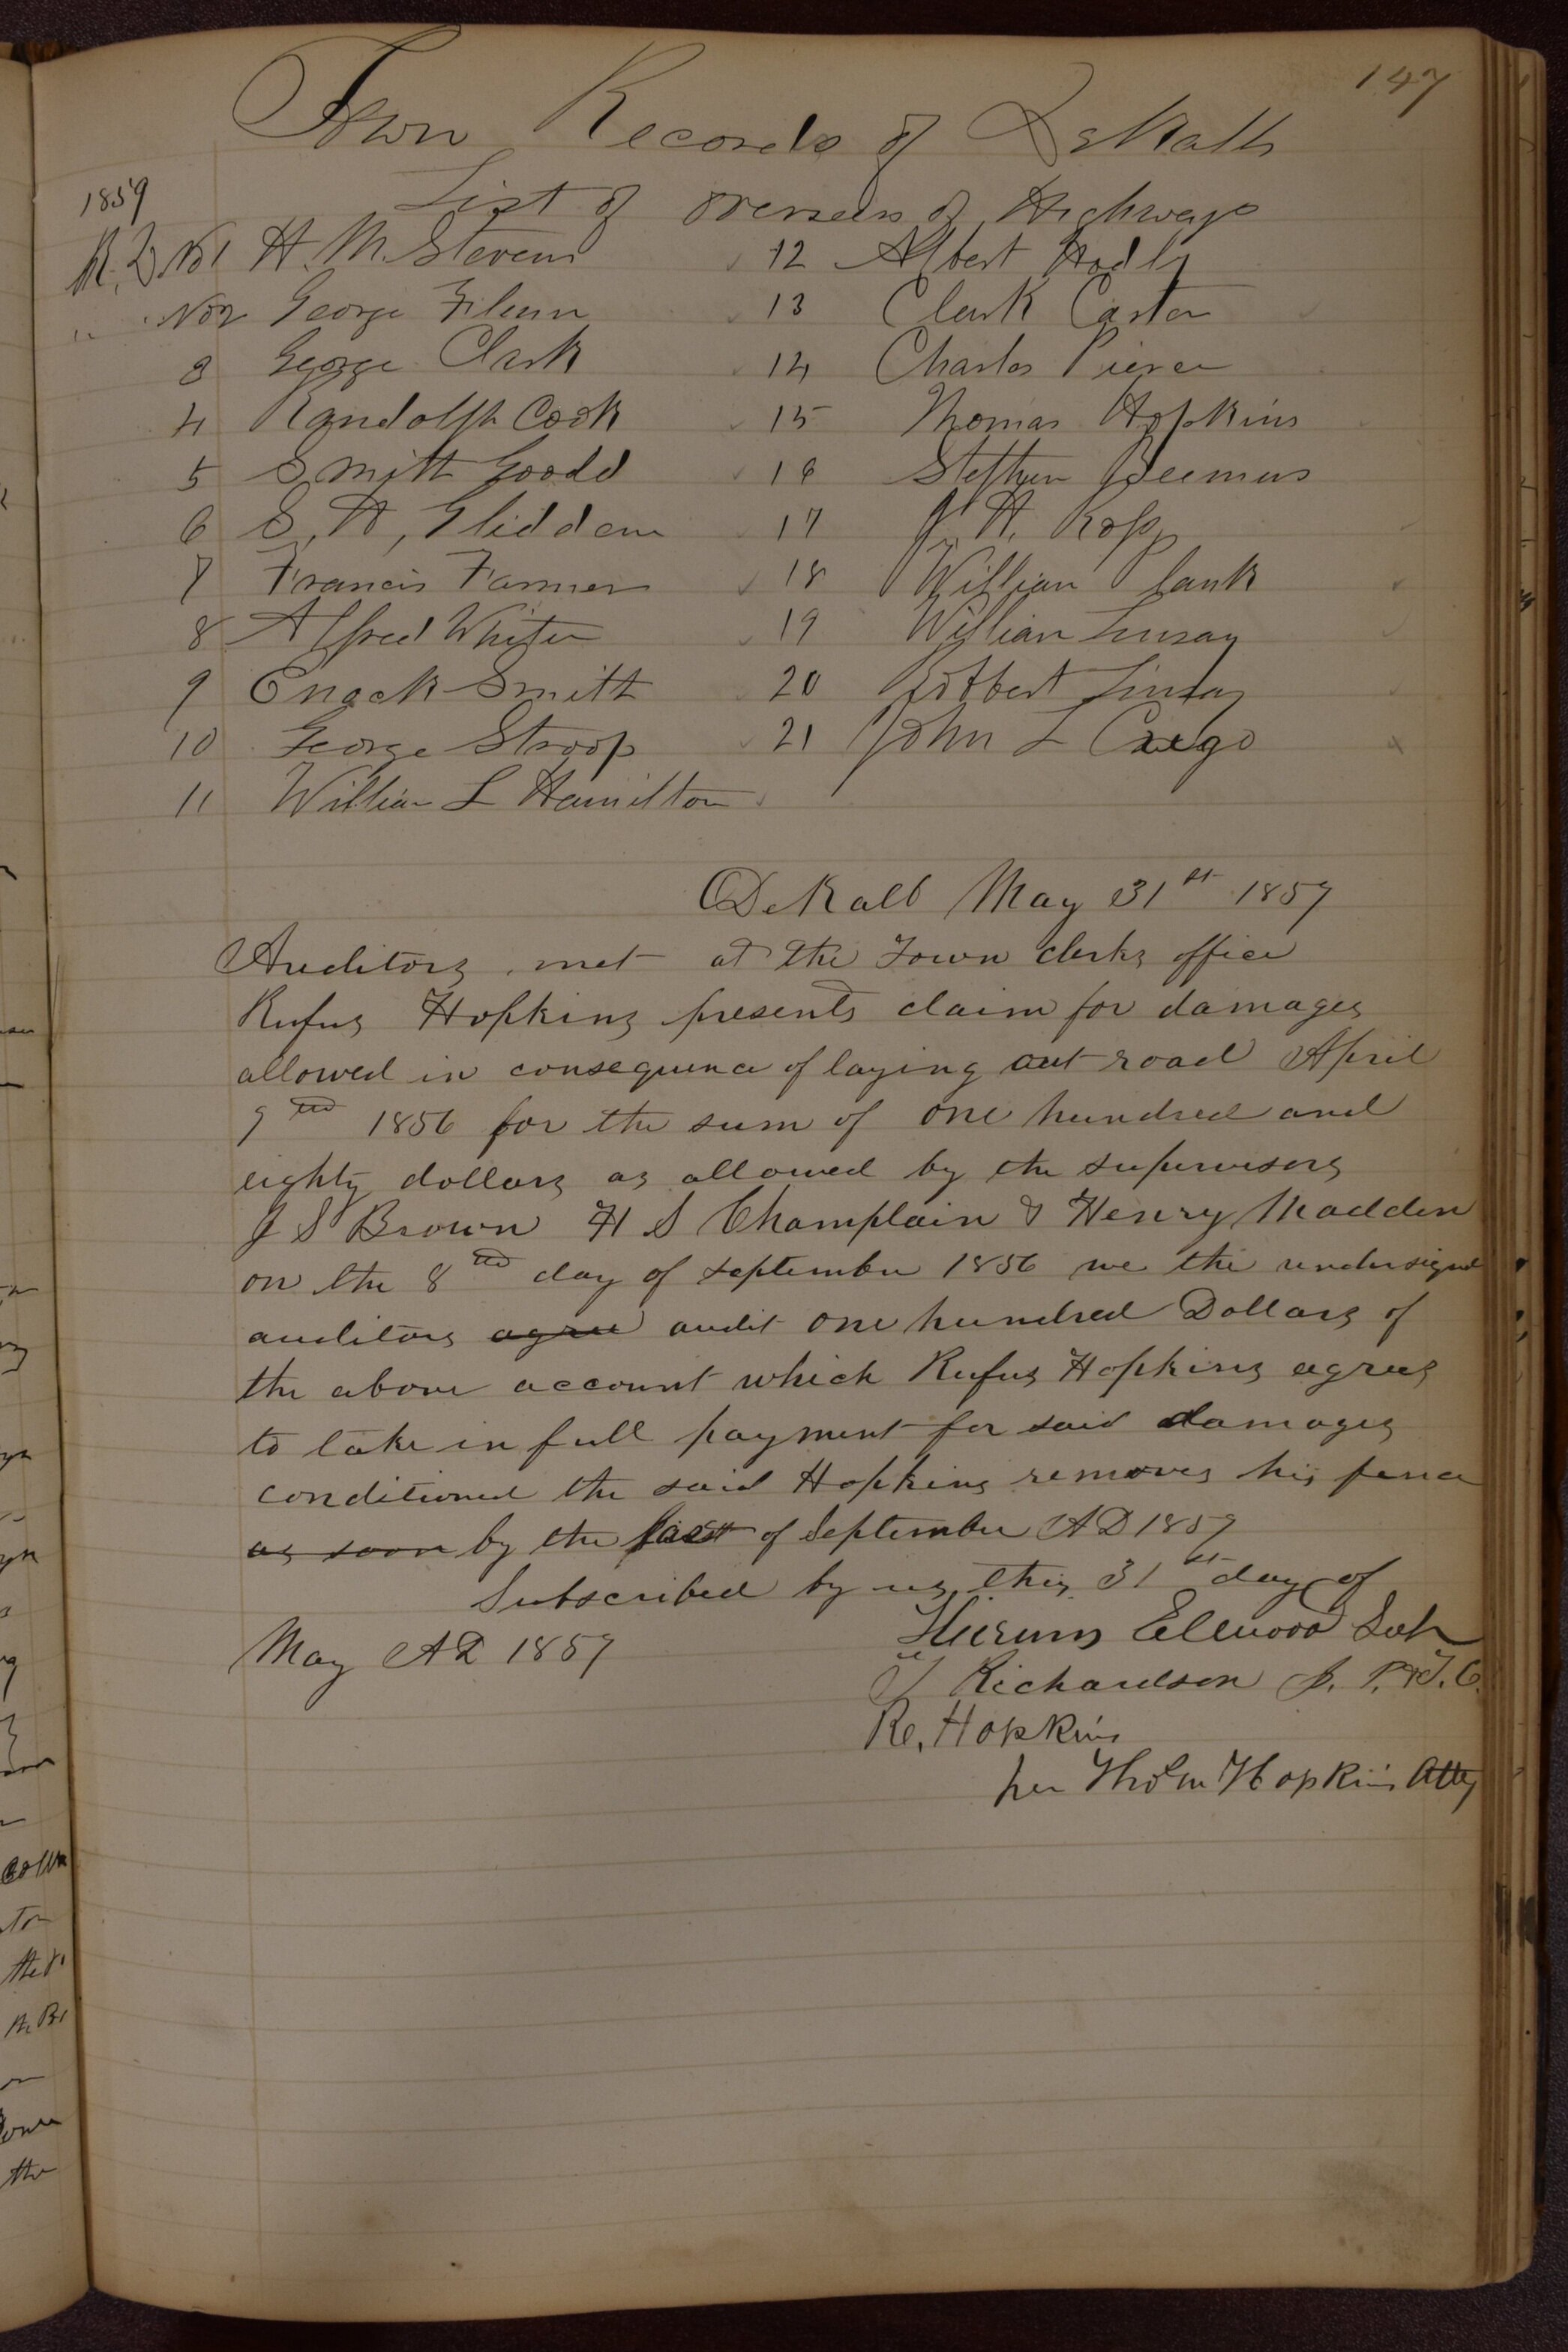 147
Town Records of DeKalb
1859
List of Overseers of Highways
R. D No 1 H. M. Stevens
" No 2 George
3 George Clark
4 Randolph Cook
5 Smith Goodd
6 S. H, Gliddem
7 Francis Farmer
8 Alfred White
9 Enock Smith
10 George Stroop
11 William L Hamilton
12 Albert
13 Clark Carter
14 Charles Pierce
15 Thomas Hopkins
16 Stephen Beemus
17 J. H. Ross
18 William Plank
19 William Linsay
20 Robbert Linsay
21 John L Crego
DeKalb May 31st 1859
Auditors met at the Town clerks office
Rufus Hopkins presents claim for damages
allowed in consequence of laying out road April
9th 1856 for the sum of one hundred and
eighty dollars as allowed by the supervisors
J S Brown H S Champlain & Henry Madden
on the 8th day of September 1856 we the undersigned
auditors agree audit one hundred Dollars of
the above account which Rufus Hopkins agrees
to take in full payment for said damages
conditioned the said Hopkins removes his fence
as soon by the first of September AD 1859
Subscribed by us this 31st day of
May AD 1859
Hirum Ellwood Sup
Richardson J. P. & T. C.
R. Hopkins
per Thos m Hopkins Atty